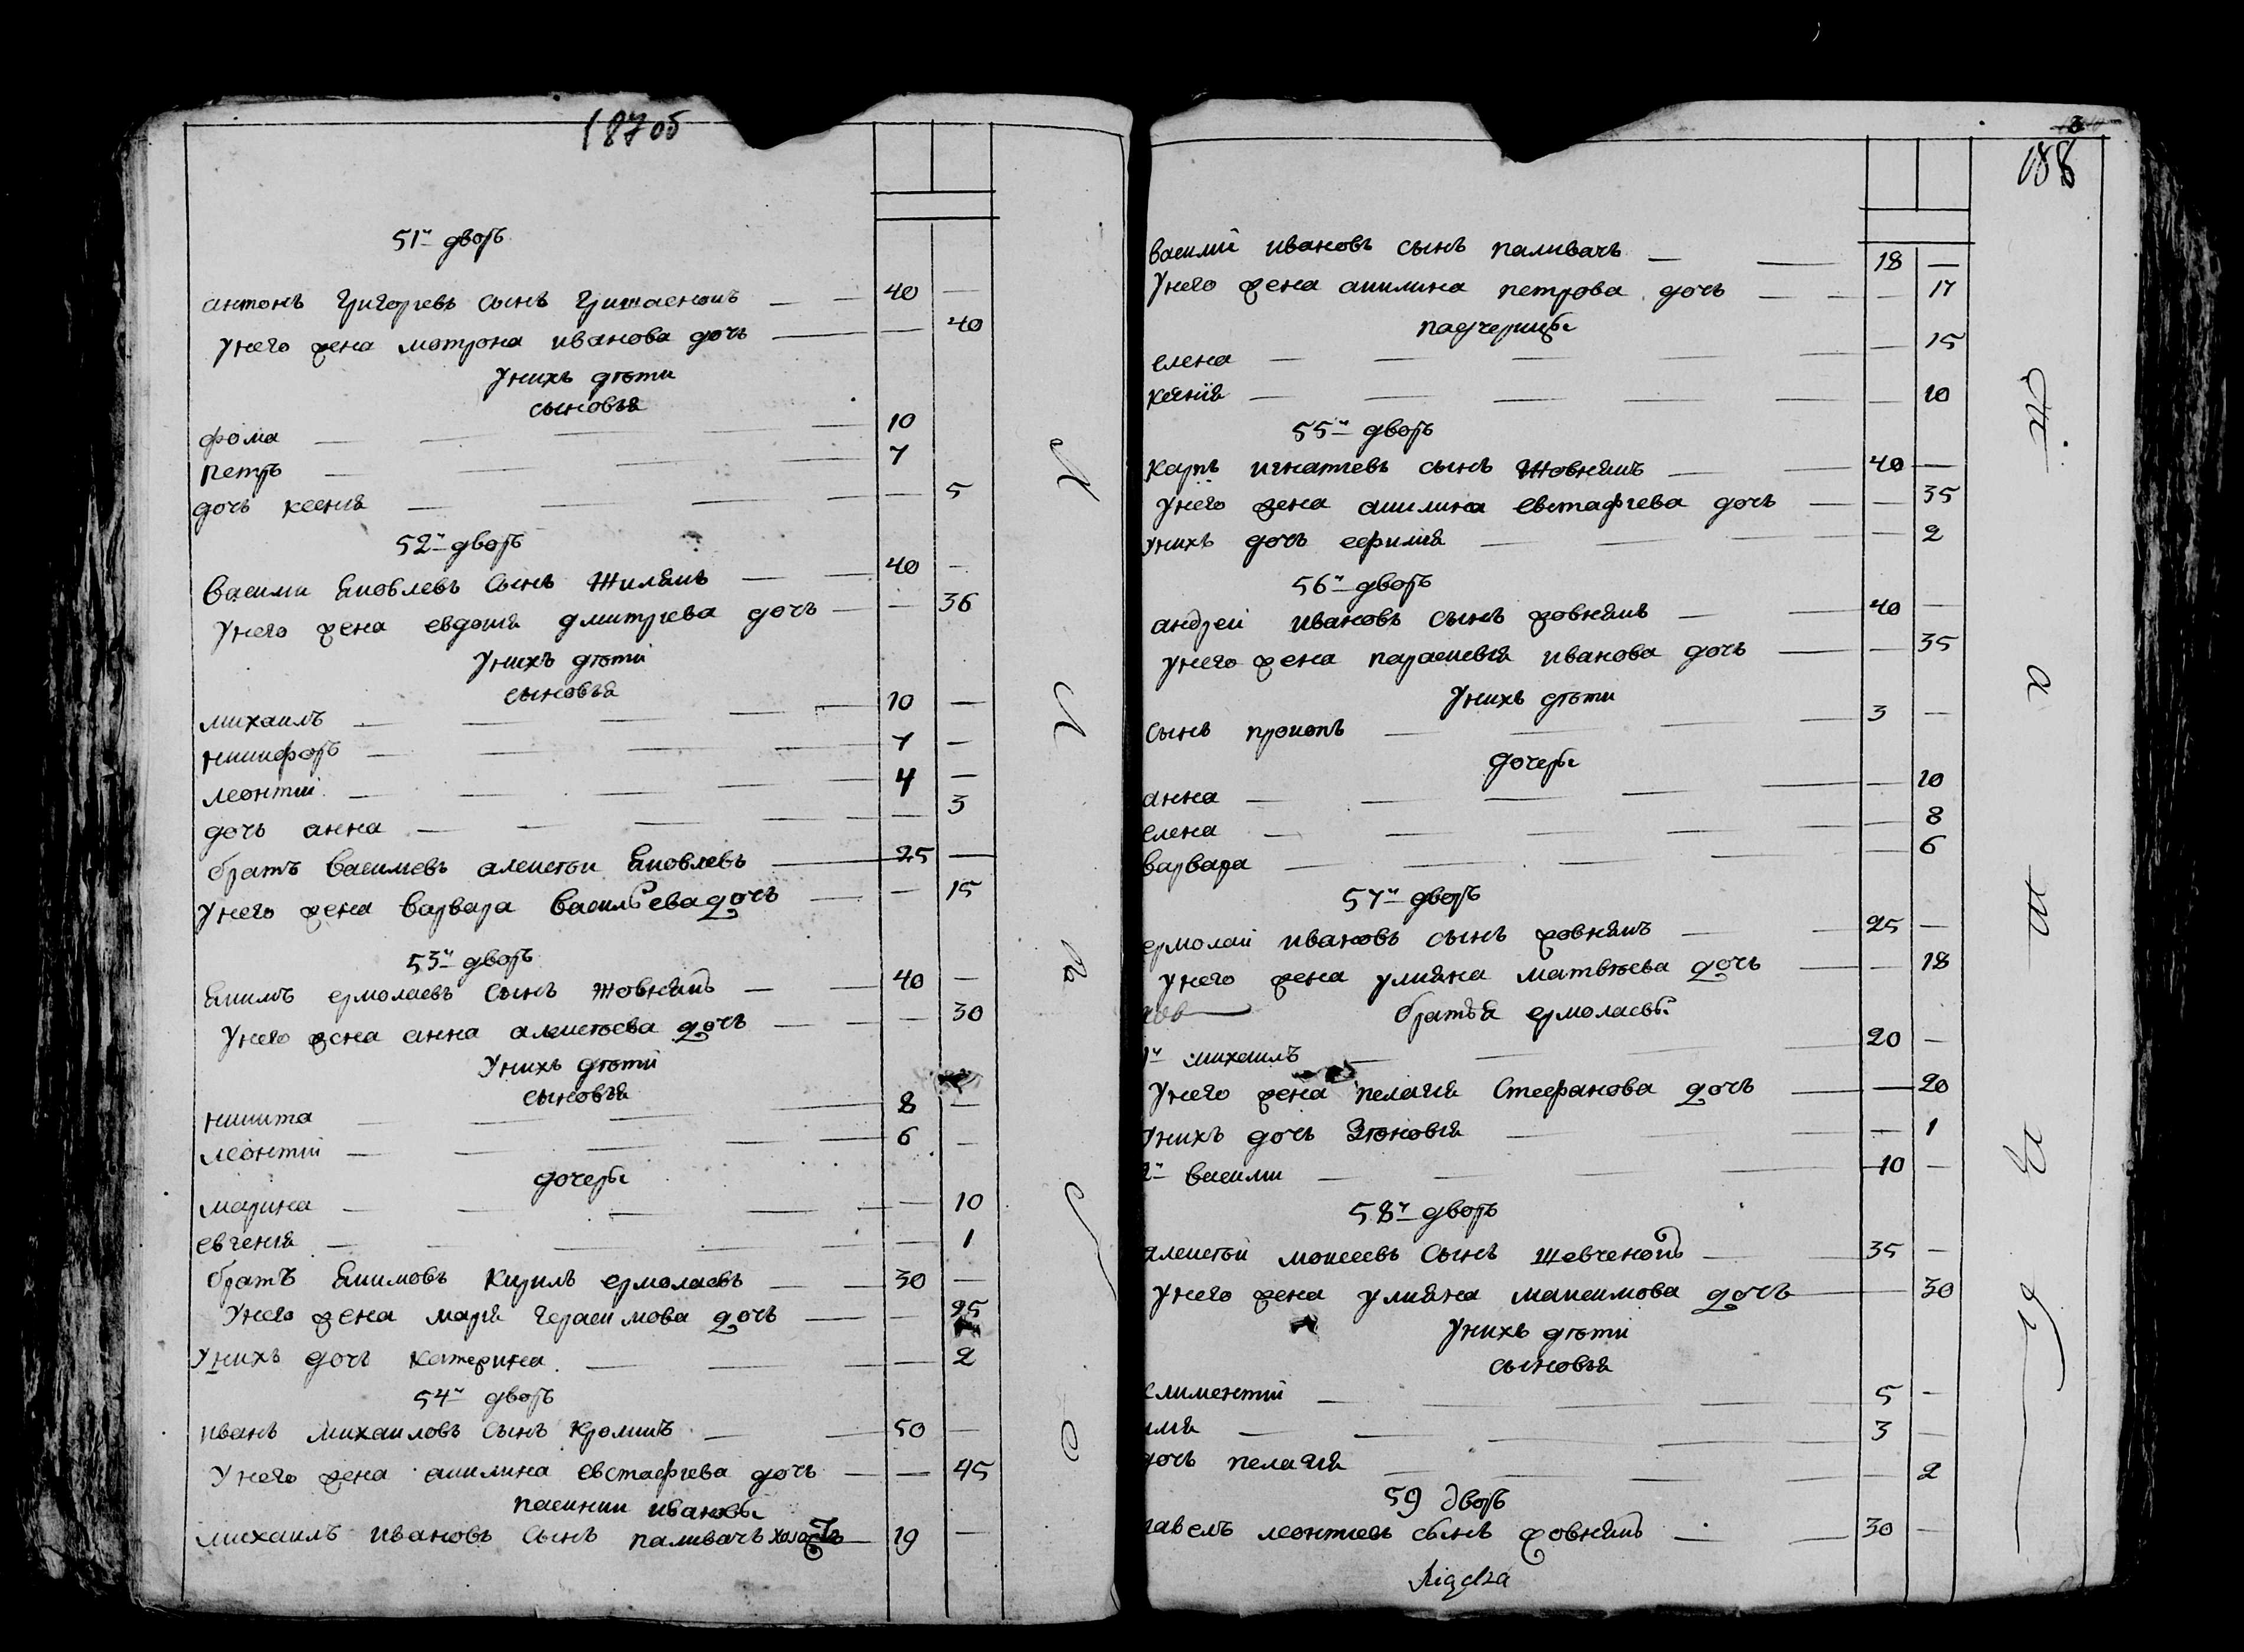 187 об
51й дворъ
антонъ григорьевъ сынъ гришаенокъ — 40 —
у него жена матрона иванова дочь — — 40
у нихъ дѣти
сыновья
фома — 10
петръ — 7
дочь ксенія — — 5
52й дворъ
василии яковлевъ сынъ жилякъ — 40 —
у него жена евдокія дмитріева дочь — — 36
у нихъ дѣти
сыновья
михаилъ — 10 —
никифоръ — 7 —
леонтій — 4 —
дочь анна — — 3
братъ василиевъ алексѣи яковлевъ — 25 —
у него жена варвара васильева дочь — — 15
53й дворъ
якимъ ермолаевъ сынъ жовнякъ — 40 —
у него жена анна алексѣева дочь — — 30
у нихъ дѣти
сыновья
никита — 8 —
леонтій — 6 —
дочеры
марина — — 10
евгенія — — 1
братъ якимовъ кирилъ ермолаевъ — 30 —
у него жена марія герасимова дочь — — 25
у нихъ дочь катерина — — 2
54й дворъ
иванъ михаиловъ сынъ кромикъ — 50 —
у него жена акилина евстафіева дочь — — 45
пасинки ивановы
михаилъ ивановъ сынъ паливачъ холостъ — 19 —
188
василій ивановъ сынъ паливачъ — 18 —
у него жена акилина петрова дочь — — 17
падчерицы
елена — — 15
ксенія — — 10
55й дворъ
карпъ игнатіевъ сынъ жовнякъ — 40 —
у него жена акилина евстафіева дочь — — 35
у нихъ дочь ефимія — — 2
56й дворъ
андреи ивановъ сынъ жовнякъ — 40 —
у него жена параскевія иванова дочь — — 35
у нихъ дѣти
сынъ прокопъ — 3 —
дочеры
анна — — 10
елена — — 8
варвара — — 6
57й дворъ
ермолаи ивановъ сынъ жовнякъ — 25 —
у него жена улияна матвѣева дочь — — 18
братья ермолаевы
1й михаилъ — 20 —
у него жена пелагія стефанова дочь — — 20
у нихъ дочь зѣновія — — 1
2й василии — 10 —
58й дворъ
алексѣи моисеевъ сынъ шевченокъ — 35 —
у него жена улияна максимова дочь — — 30
у нихъ дѣти
сыновья
климентій — 5 —
илія — 3 —
дочь пелагія — — 2
59 дворъ
павелъ леонтиевъ сынъ жовнякъ — 30 —